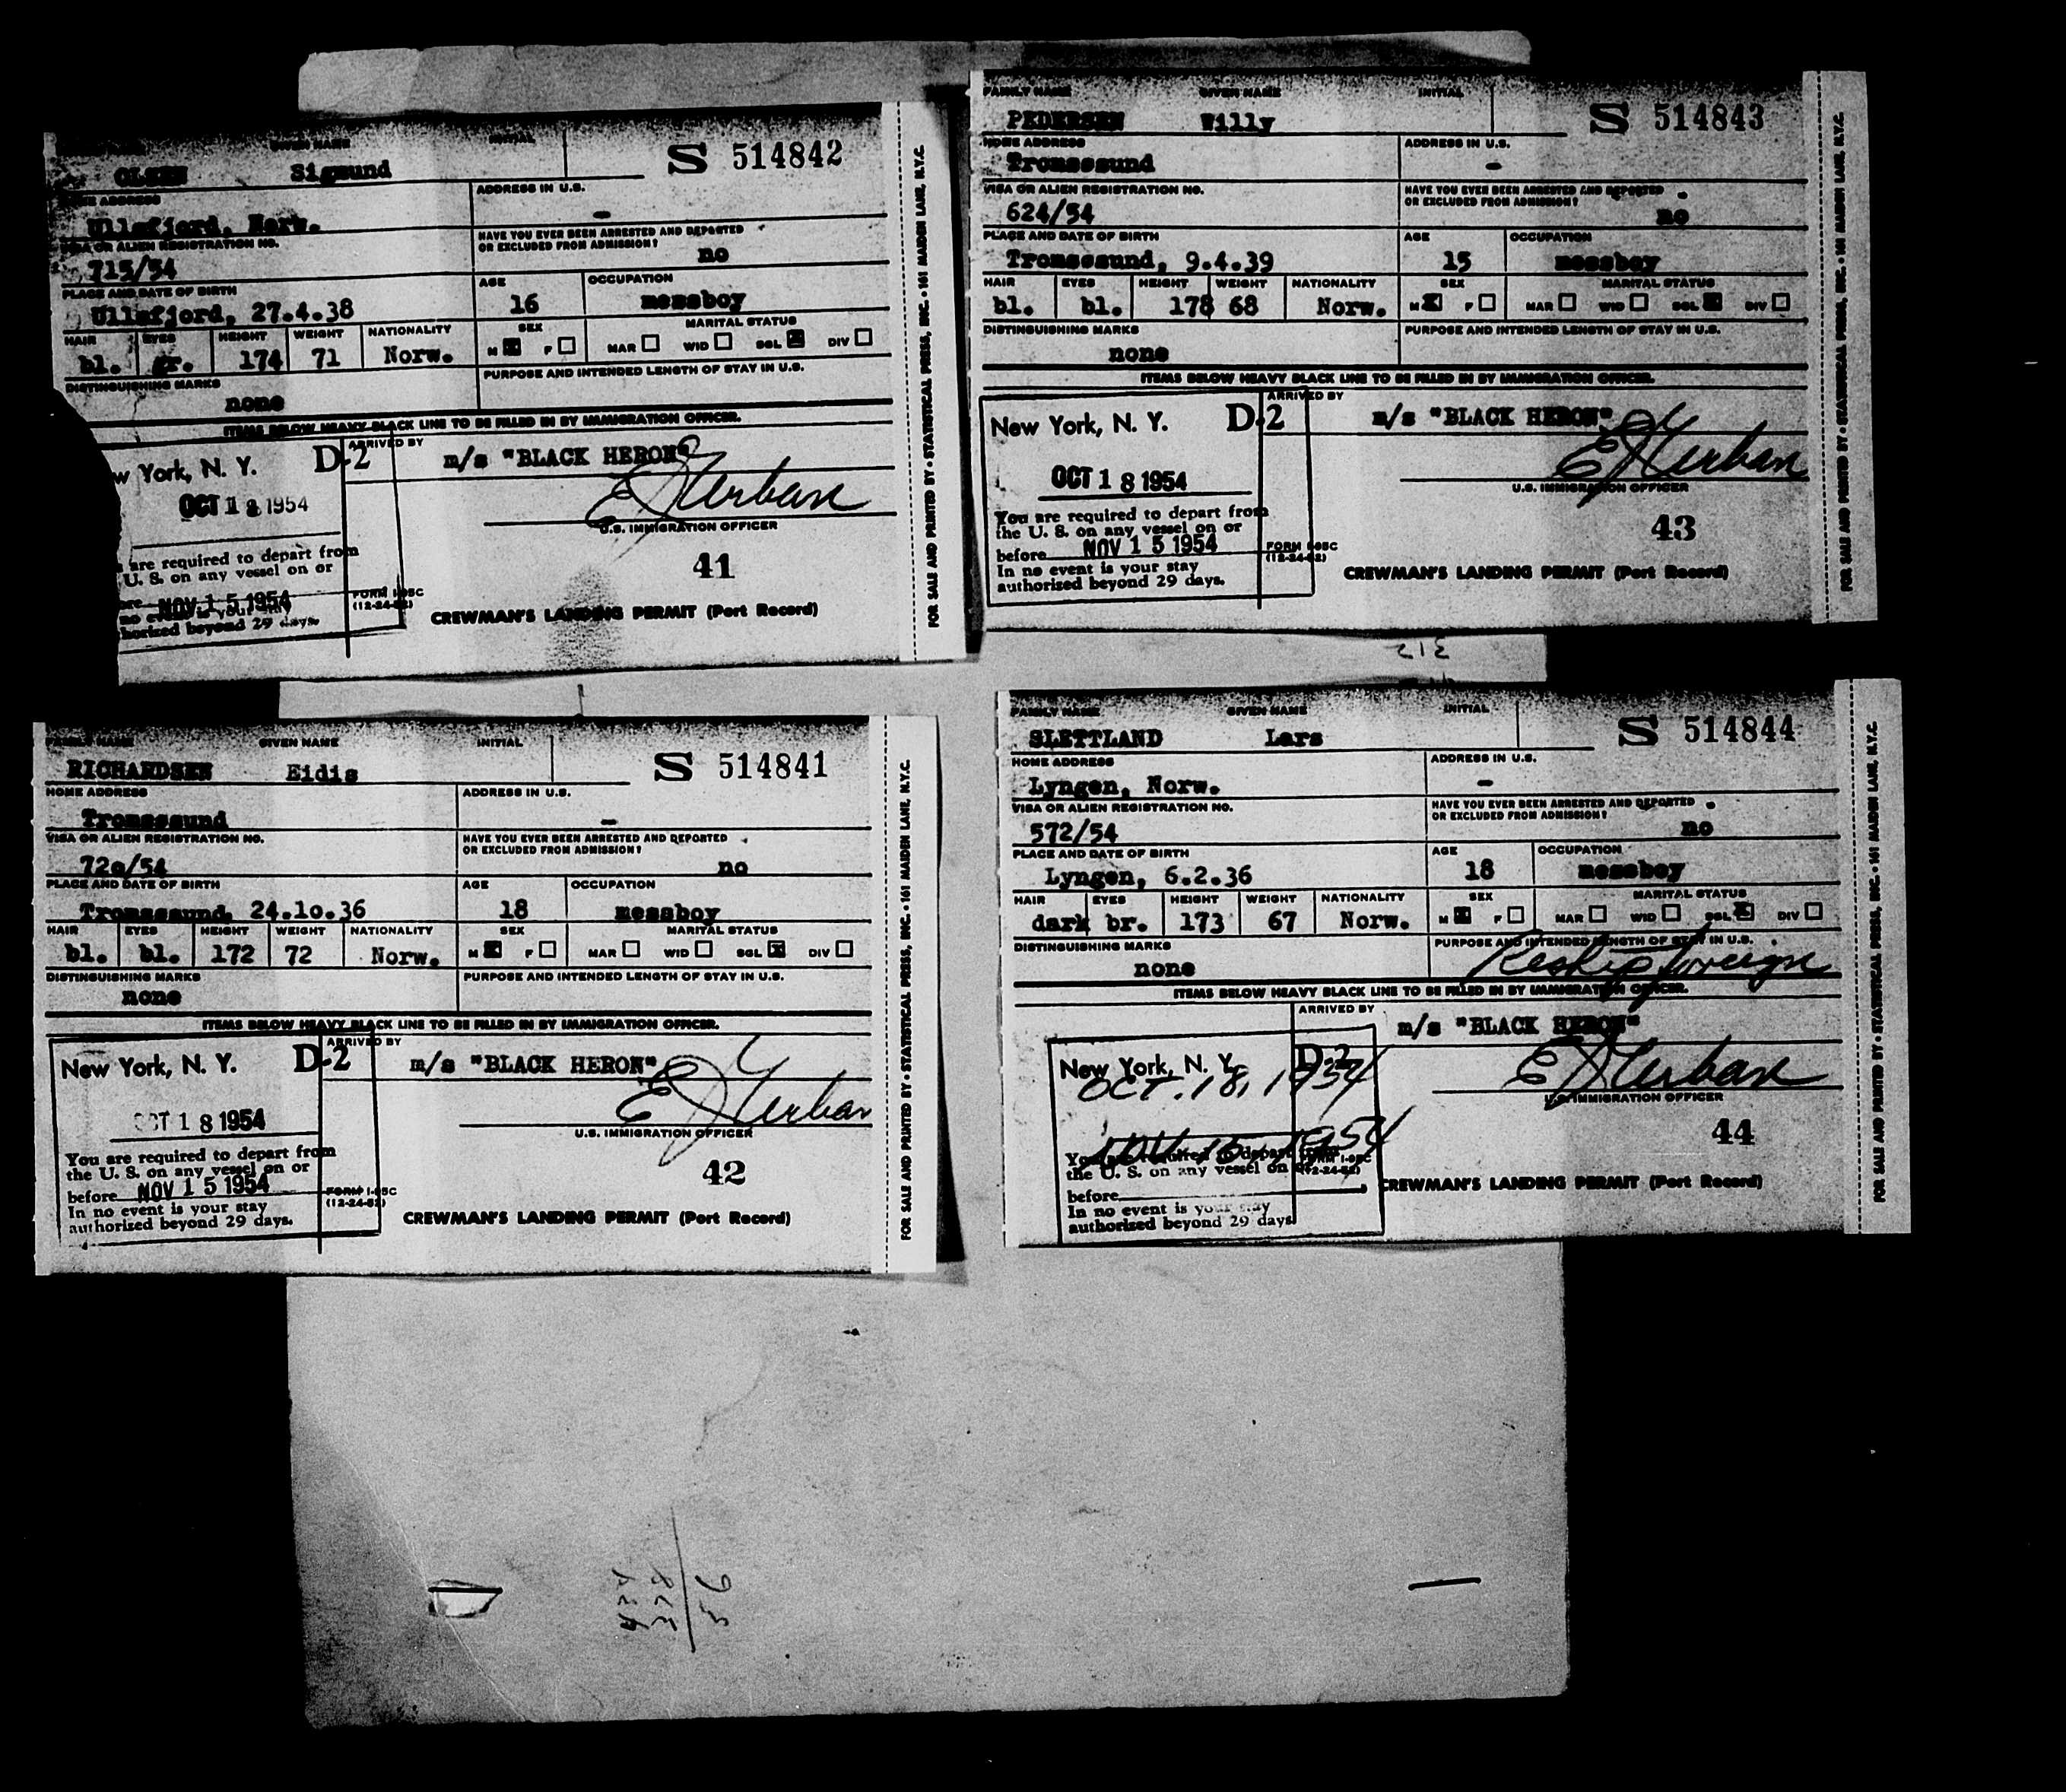 GIVEN NAME INITIAL
OLSEN Sigmund S 514842
HOME ADDRESS ADDRESS IN U.S.
Ullsfjord, Norw. -
VISA OR ALIEN REGISTRATION NO. HAVE YOU EVER BEEN ARRESTED AND DEPORTED
OR EXCLUDED FROM ADMISSION?
715/54 no
PLACE AND DATE OF BIRTH AGE OCCUPATION
Ullsfjord, 27.4.38 16 messboy
HAIR EYES HEIGHT WEIGHT NATIONALITY SEX MARITAL STATUS
bl. gr. 174 71 Norw. M X F MAR WID SGL X DIV
DISTINGUISHING MARKS PURPOSE AND INTENDED LENGTH OF STAY IN U.S.
none
ITEMS BELOW HEAVY BLACK LINE TO BE FILLED IN BY IMMIGRATION OFFICER.
ARRIVED BY
w York, N. Y. D-2 m/s "BLACK HERON"
OCT 18 1954 E J Urban
U.S. IMMIGRATION OFFICER
are required to depart from
U. S. on any vessel on or 41
re NOV 15 1954 FORM I-95C
no event is your stay (12-24-52)
horized beyond 29 days. CREWMAN'S LANDING PERMIT (Port Record)
FOR SALE AND PRINTED BY • STATISTICAL PRESS, INC. • 161 MAIDEN LANE, N.Y.C.
FAMILY NAME GIVEN NAME INITIAL
PEDERSEN Willy S 514843
HOME ADDRESS ADDRESS IN U.S.
Tromsøsund -
VISA OR ALIEN REGISTRATION NO. HAVE YOU EVER BEEN ARRESTED AND DEPORTED
OR EXCLUDED FROM ADMISSION?
624/54 no
PLACE AND DATE OF BIRTH AGE OCCUPATION
Tromsøsund, 9.4.39 15 messboy
HAIR EYES HEIGHT WEIGHT NATIONALITY SEX MARITAL STATUS
bl. bl. 178 68 Norw. M X F MAR WID SGL X DIV
DISTINGUISHING MARKS PURPOSE AND INTENDED LENGTH OF STAY IN U.S.
none
ITEMS BELOW HEAVY BLACK LINE TO BE FILLED IN BY IMMIGRATION OFFICER.
ARRIVED BY
New York, N. Y. D-2 m/s "BLACK HERON"
OCT 18 1954 E J Urban
U.S. IMMIGRATION OFFICER
You are required to depart from
the U. S. on any vessel on or 43
before NOV 15 1954 FORM I-95C
In no event is your stay (12-24-52)
authorized beyond 29 days. CREWMAN'S LANDING PERMIT (Port Record)
FOR SALE AND PRINTED BY • STATISTICAL PRESS, INC. • 161 MAIDEN LANE, N.Y.C.
312
FAMILY NAME GIVEN NAME INITIAL
RICHARDSEN Eidis S 514841
HOME ADDRESS ADDRESS IN U.S.
Tromsøsund -
VISA OR ALIEN REGISTRATION NO. HAVE YOU EVER BEEN ARRESTED AND DEPORTED
OR EXCLUDED FROM ADMISSION?
72o/54 no
PLACE AND DATE OF BIRTH AGE OCCUPATION
Tromsøsund, 24.1o.36 18 messboy
HAIR EYES HEIGHT WEIGHT NATIONALITY SEX MARITAL STATUS
bl. bl. 172 72 Norw. M X F MAR WID SGL X DIV
DISTINGUISHING MARKS PURPOSE AND INTENDED LENGTH OF STAY IN U.S.
none
ITEMS BELOW HEAVY BLACK LINE TO BE FILLED IN BY IMMIGRATION OFFICER.
ARRIVED BY
New York, N. Y. D-2 m/s "BLACK HERON"
OCT 18 1954 E J Urban
U.S. IMMIGRATION OFFICER
You are required to depart from
the U. S. on any vessel on or 42
before NOV 15 1954 FORM I-95C
In no event is your stay (12-24-52)
authorized beyond 29 days. CREWMAN'S LANDING PERMIT (Port Record)
FOR SALE AND PRINTED BY • STATISTICAL PRESS, INC. • 161 MAIDEN LANE, N.Y.C.
FAMILY NAME GIVEN NAME INITIAL
SLETTLAND Lars S 514844
HOME ADDRESS ADDRESS IN U.S.
Lyngen, Norw. -
VISA OR ALIEN REGISTRATION NO. HAVE YOU EVER BEEN ARRESTED AND DEPORTED
OR EXCLUDED FROM ADMISSION?
572/54 no
PLACE AND DATE OF BIRTH AGE OCCUPATION
Lyngen, 6.2.36 18 messboy
HAIR EYES HEIGHT WEIGHT NATIONALITY SEX MARITAL STATUS
dark br. 173 67 Norw. M X F MAR WID SGL X DIV
DISTINGUISHING MARKS PURPOSE AND INTENDED LENGTH OF STAY IN U.S.
none Reship foreign
ITEMS BELOW HEAVY BLACK LINE TO BE FILLED IN BY IMMIGRATION OFFICER.
ARRIVED BY
m/s "BLACK HERON"
New York, N. Y. D-2
OCT. 18, 1954 E J Urban
U.S. IMMIGRATION OFFICER
Nov. 15, 1954 44
You are required to depart from
the U. S. on any vessel on or FORM I-95C (12-24-52)
before
In no event is your stay CREWMAN'S LANDING PERMIT (Port Record)
authorized beyond 29 days
FOR SALE AND PRINTED BY • STATISTICAL PRESS, INC. • 161 MAIDEN LANE, N.Y.C.